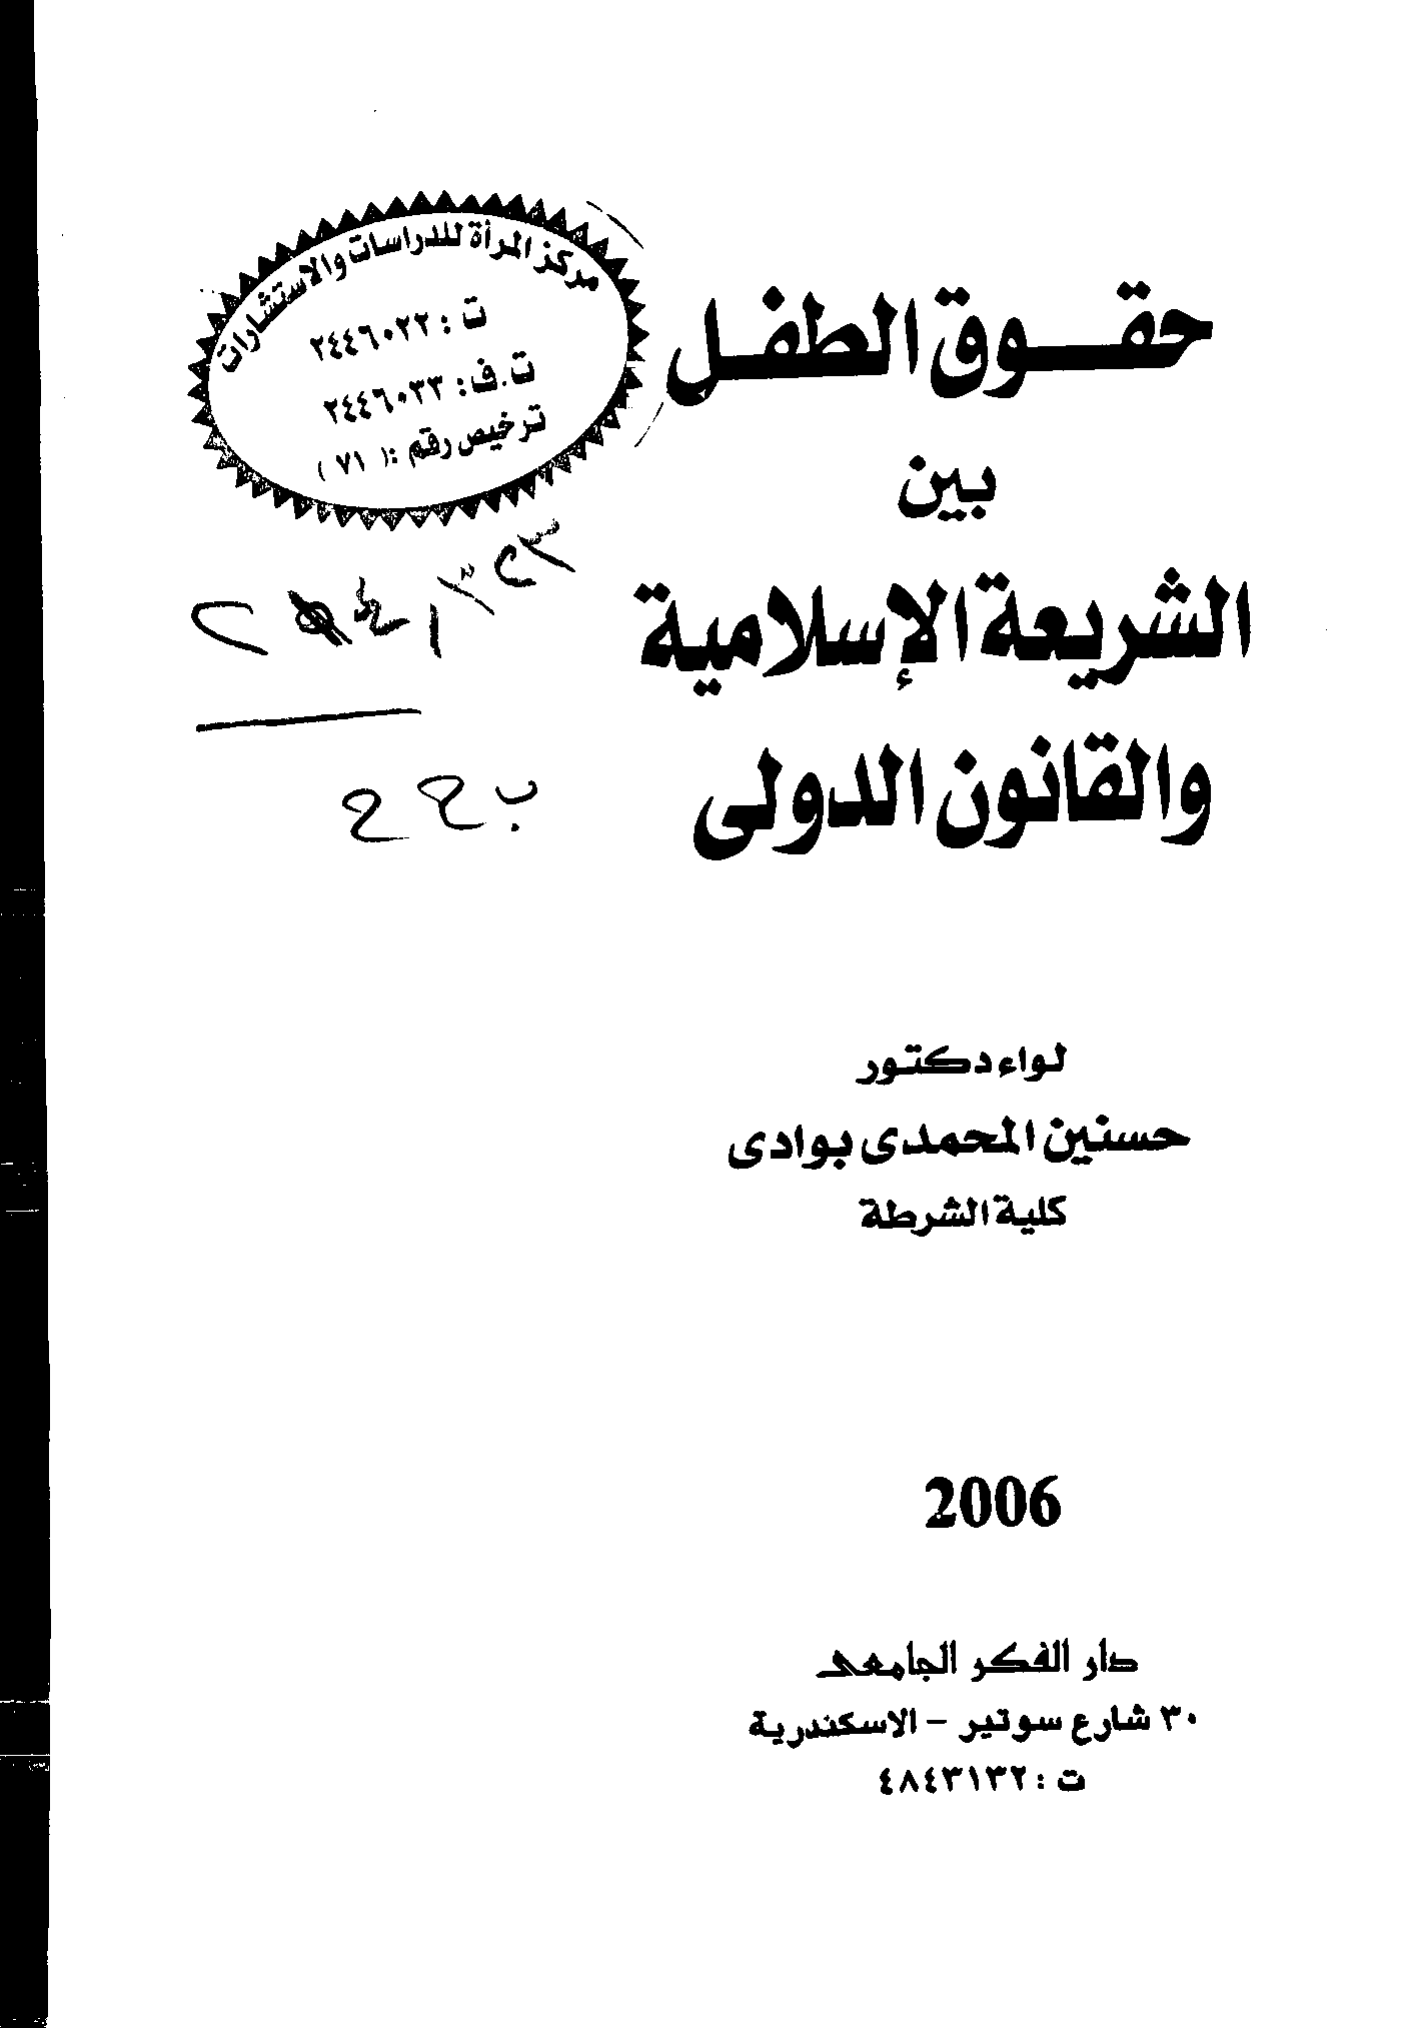 مركز المرأة للدراسات والاستشارات
ت : ٢٤٤٦٠٢٢
ت . ف : ٢٤٤٦٠٣٣
ترخيص رقم : ( ٧١ )
حقوق الطفل
بين
الشريعة الإسلامية
والقانون الدولى
لواء دكتور
حسنين المحمدى بوادى
كلية الشرطة
2006
دار الفكر الجامعى
٣٠ شارع سوتير - الاسكندرية
ت : ٤٨٤٣١٣٢